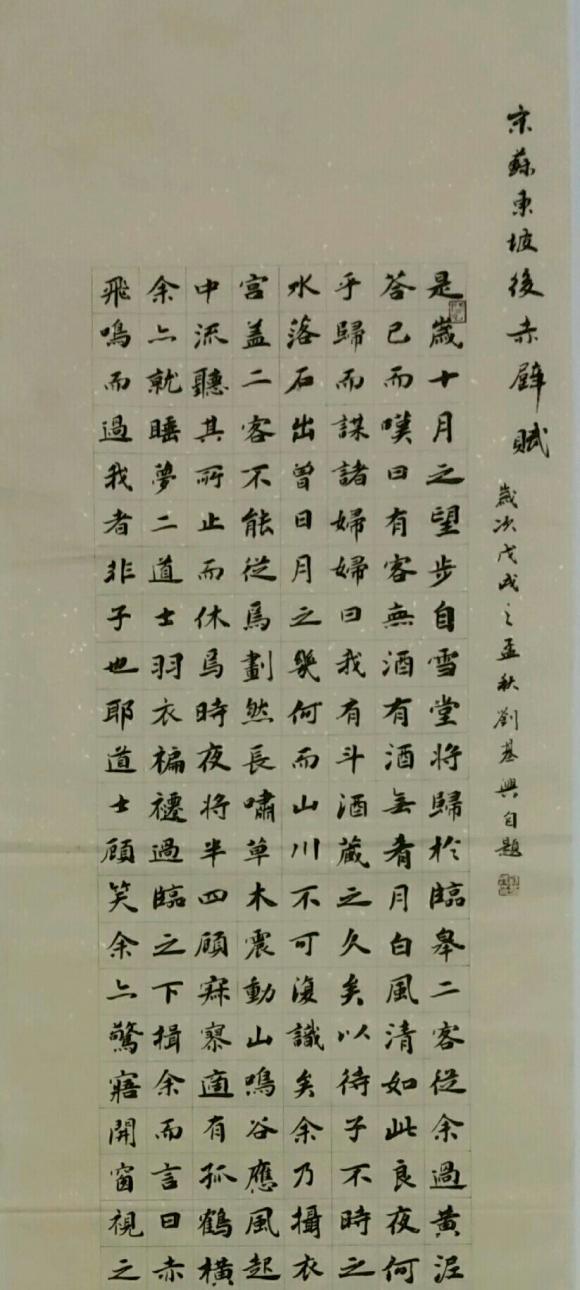 宋蘇東坡後赤壁賦
歲次戊戌之孟秋劉基興自題
是歲十月之望步自雪堂將歸於臨皋二客從余過黃泥
答已而嘆曰有客無酒有酒無肴月白風清如此良夜何
乎歸而謀諸婦婦曰我有斗酒藏之久矣以待子不時之
水落石出曾日月之幾何而山川不可復識矣余乃攝衣
宮盖二客不能從焉劃然長嘯草木震動山鳴谷應風起
中流聽其所止而休焉時夜將半四顧寂寥適有孤鶴橫
余亦就睡夢二道士羽衣褊褼過臨之下揖余而言曰赤
飛鳴而過我者非子也耶道士顧笑余亦驚寤開窗視之